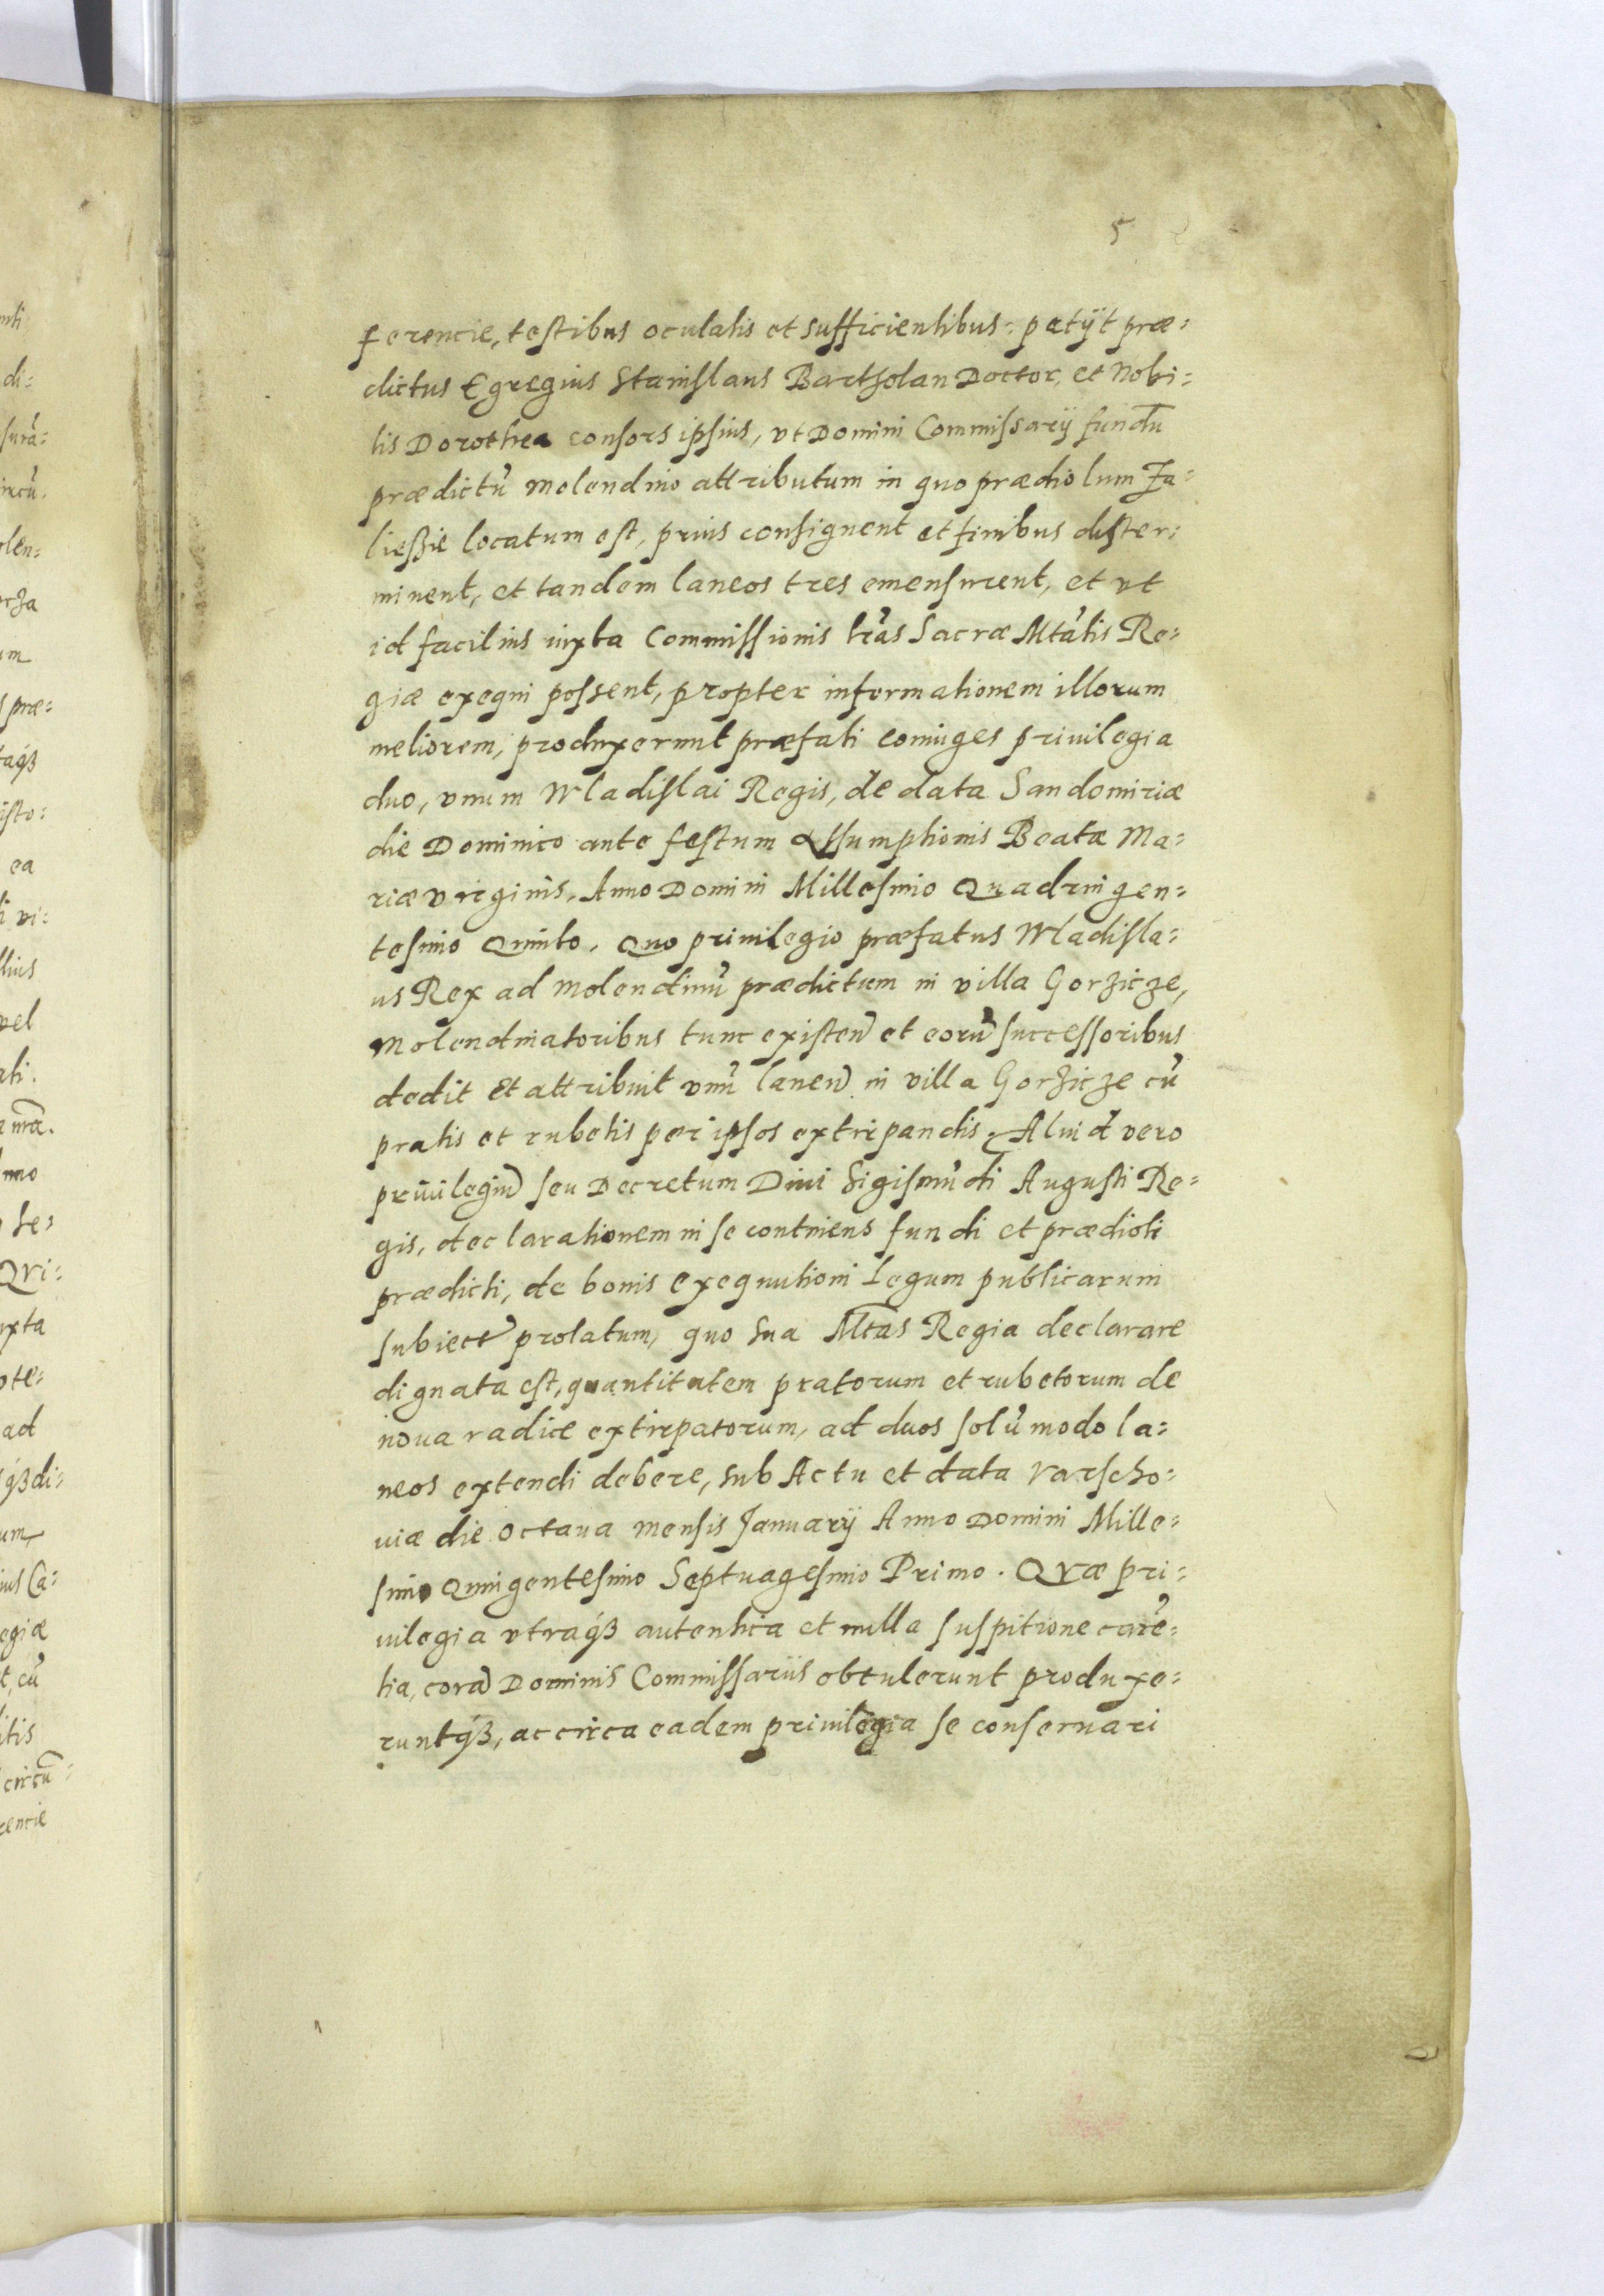 5
ferencie, testibus oculatis et sufficientibus: petijt præ=
dictus Egregius Stanislaus Bartholan Doctor, et Nobi=
lis Dorothea consors ipsius, vt Domini Commissarij fundū
prædictũ molendino attributum in quo prædiolum Za=
liessie locatum est, prius consignent et finibus dister=
minent, et tandem laneos tres emensurent, et vt
id facilius iuxta Commissionis lr̃as Sacræ Mtãtis Re=
giæ exequi possent, propter informationem illorum
meliorem, produxerunt præfati coniuges priuilegia
duo, vnum Wladislai Regis, de data Sandomiriæ
die Dominico ante festum Assumptionis Beatæ Ma=
riæ virginis, Anno Domini Millesimo Quadringen=
tesimo Quinto. Quo priuilegio præfatus Wladisla=
us Rex ad molendinũ prædictum in villa Gorzicze,
Molendinatoribus tunc existeñ et eorũ successoribus
dedit et attribuit vnũ laneũ in villa Gorzicze cũ
pratis et rubetis per ipsos extirpandis. Aliud vero
priuilegiũ seu Decretum Diui Sigismũdi Augusti Re=
gis, declarationem in se continens fundi et prædioli
prædicti, de bonis exequutioni Legum publicarum
subiect̃ prolatum, quo sua Mtas Regia declarare
dignata est, quantitatem pratorum et rubetorum de
noua radice extirpatorum, ad duos solũmodo la=
neos extendi debere, sub Actu et data Varscho=
uiæ die octaua mensis Januarij Anno Domini Mille=
simo Quingentesimo Septuagesimo Primo. Quæ pri=
uilegia vtraq́ꝫ autentica et nulla suspitione carẽ=
tia, corã Dominis Commissariis obtulerunt produxe=
runtq́ꝫ, ac circa eadem priuilegia se conseruari